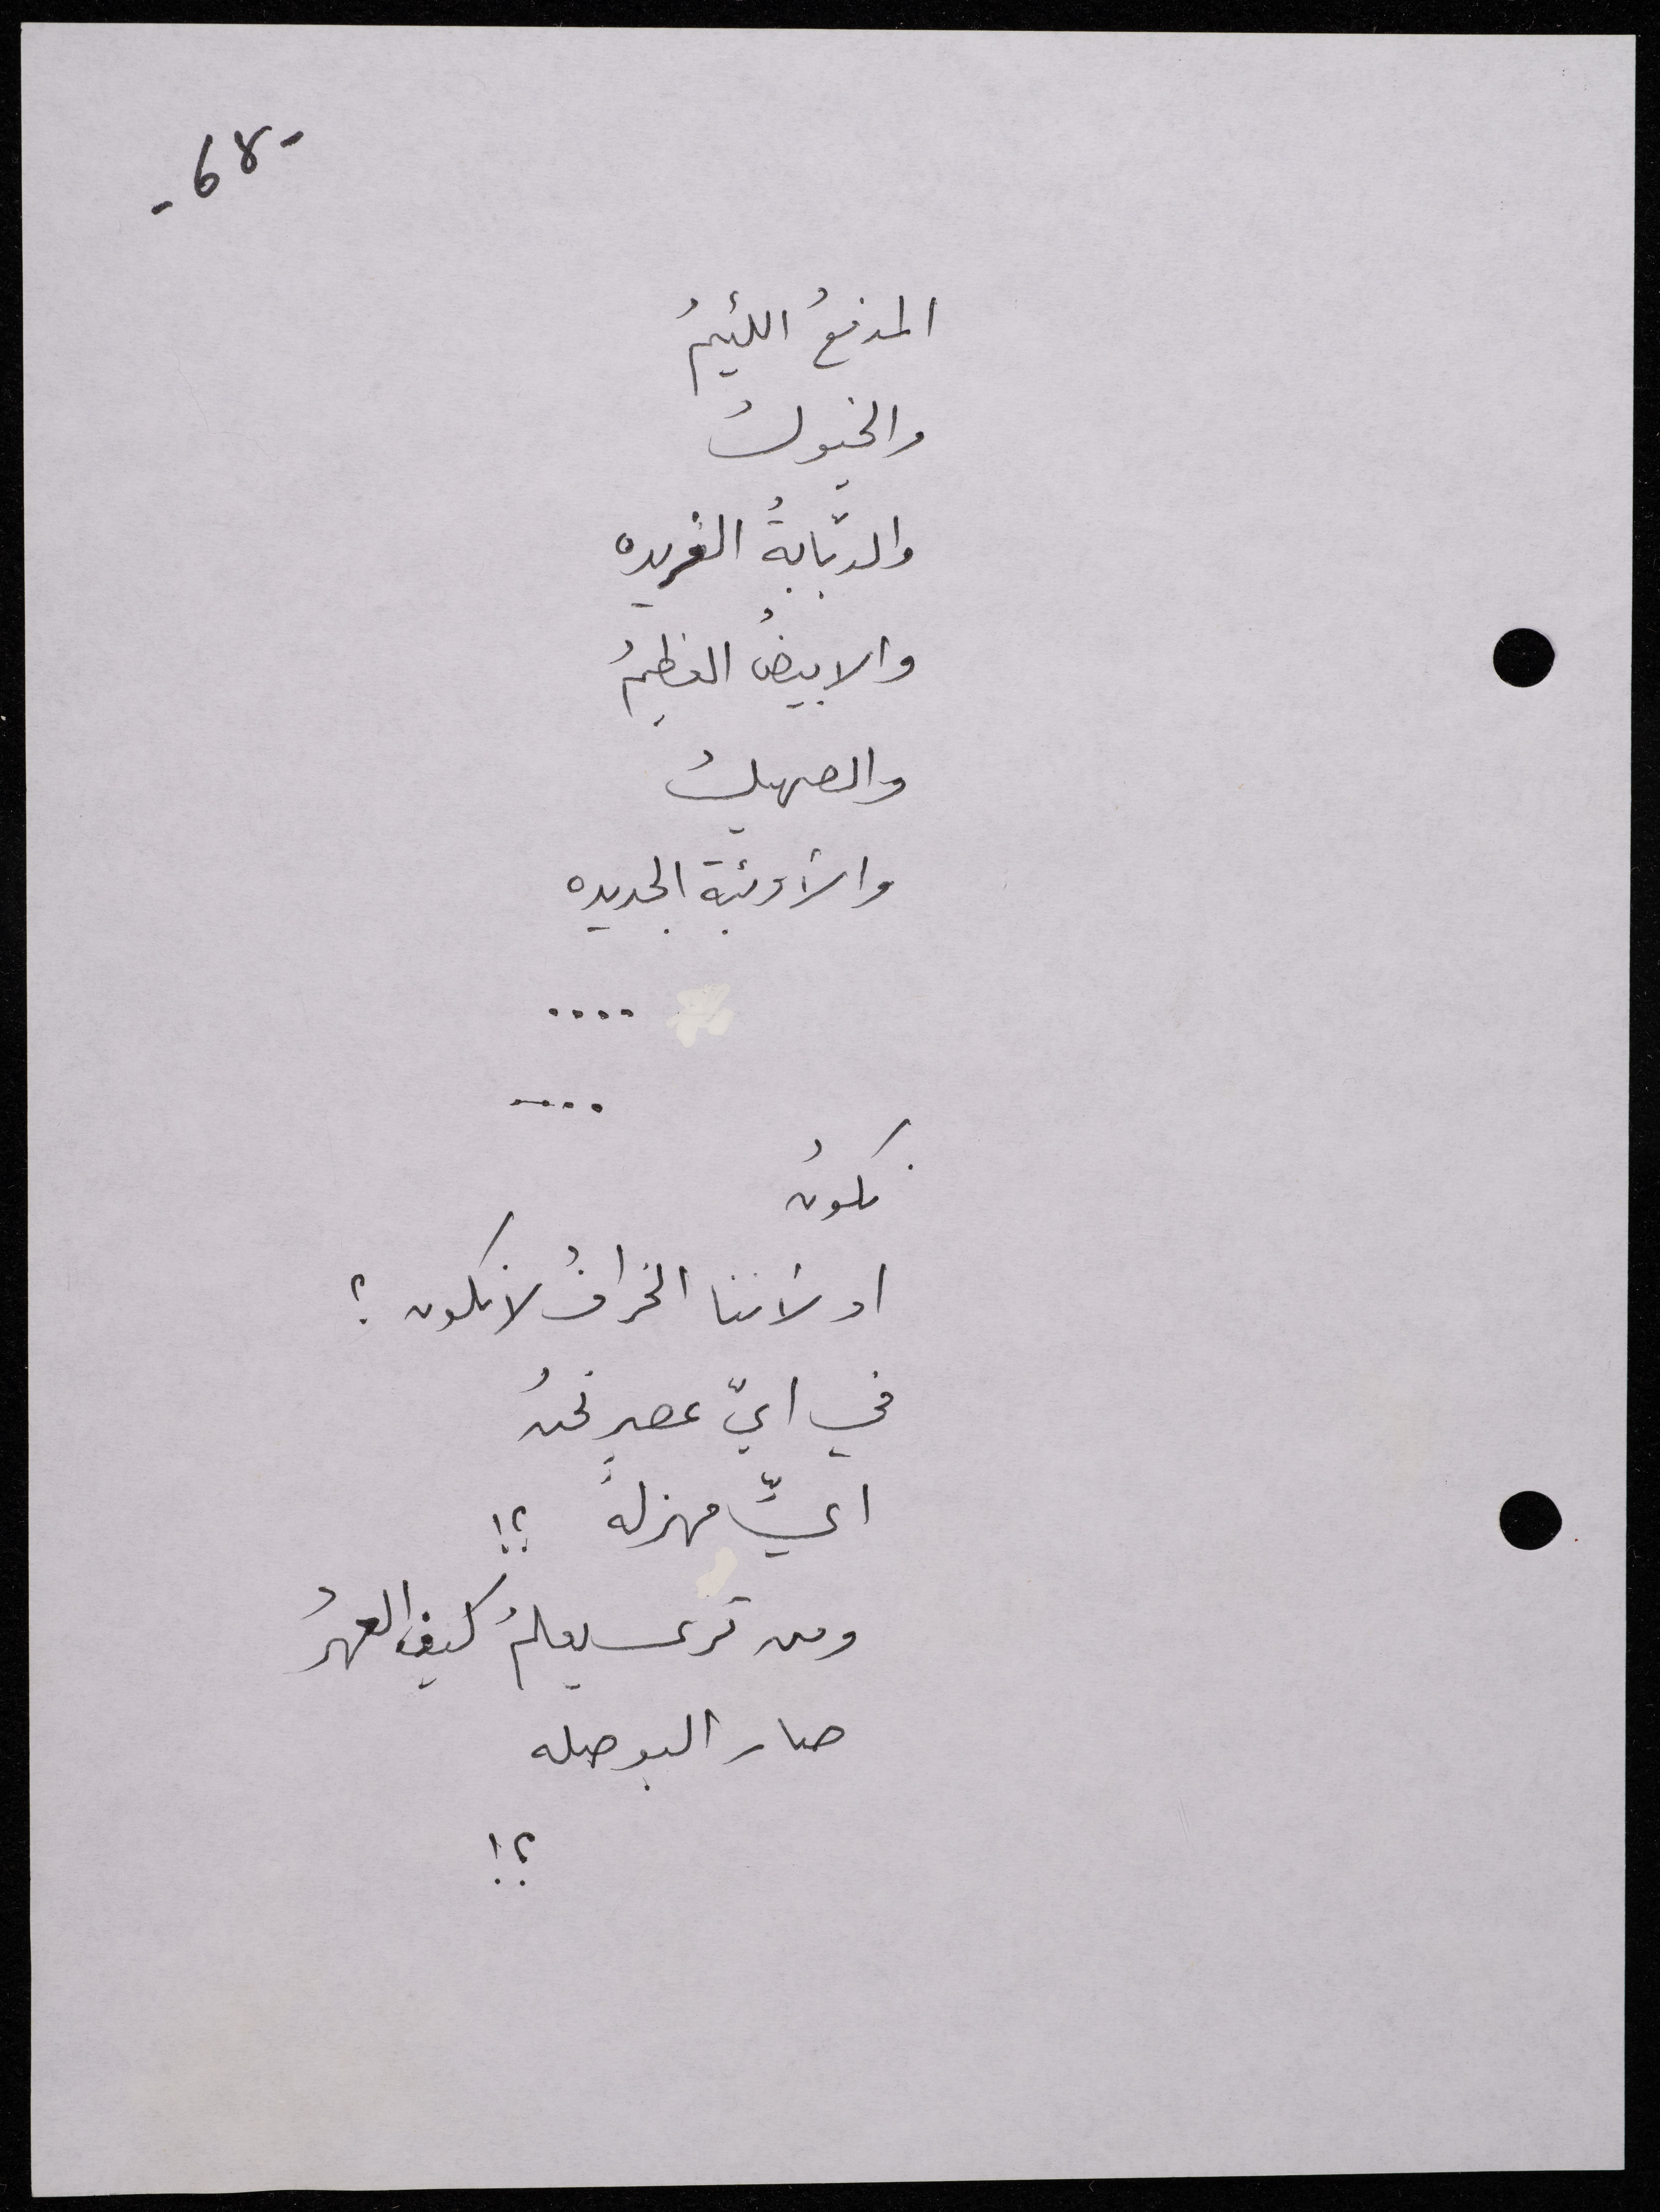 -68-
المدفعُ اللئيمُ
والخيولُ
والدبّابةُ الفريده
والابيضُ العظيمُ
والصهيلُ
والأوبئة الجديده
....
....
نكونُ
او لأننا الخرافُ لا نكون ؟
في ايّ عصرٍ نحنُ
ايُّ مهزلةٍ ؟!
ومن ترى يعلمُ كيف العهرُ
صار البوصله
؟!